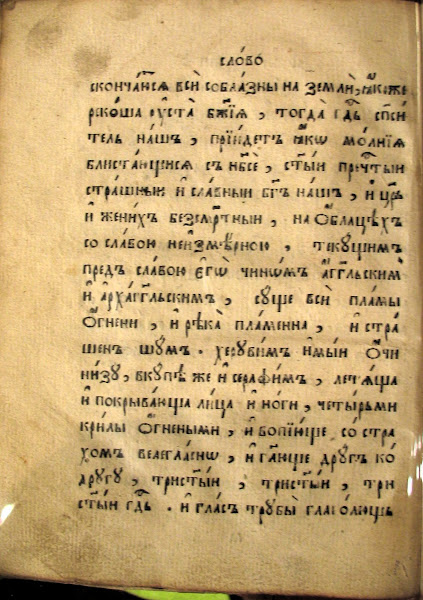 сло́во
сконча́ются всѝ собла́зны на землѝ, ꙗ҆́коже
реко́ша оу҆ста̀ бж҃їѧ, тогда̀ гдⷭ҇ь сп҃си
тель на́шъ, прїи́детъ ꙗ҆́кѡ мо́лнїѧ
блиста́ющисѧ съ нб҃сѐ, ст҃ы́й пречⷭ҇тый
стра́шный и҆ сла́вный бг҃ъ на́шъ, и҆ цр҃ь
и҆ жени́хъ безсме́ртный, на ѡ҆́блацѣхъ
со сла́вою неи҆змѣ́рною, текꙋ́щимъ
предъ сла́вою є҆гѡ̀ чинѡ́мъ а҆́гг҃льскимъ
и҆ а҆рха́гг҃льскимъ, сꙋ́ще всѝ пла́мы
ѻ҆́гнени, и҆ рѣка̀ пла́менна, и҆ стра́
шенъ шꙋ́мъ. херꙋви́мъ и҆мы́й ѻ҆́чи
ни́зꙋ, вкꙋ́пѣ же и҆ серафи́мъ, летѧ́ща
и҆ покрыва́юща ли́ца и҆ но́ги, четы́рьми
кри́лы ѻ҆́гнеными, и҆ вопїю́ще со стра́
хомъ велегла́снѡ, и҆ гл҃юще дрꙋ́гъ ко
дрꙋ́гꙋ, трист҃ы́й, трист҃ы́й, три
ст҃ы́й гдⷭ҇ь. и҆ гла́съ трꙋбы̀ глаго́лющь